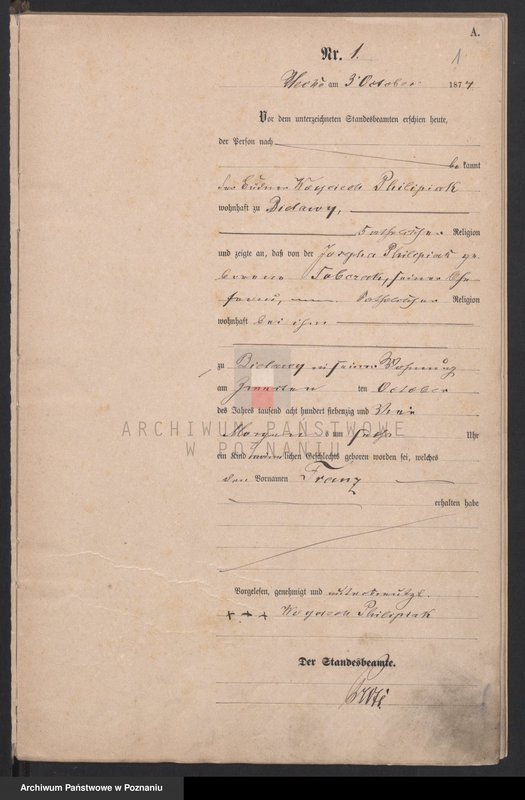 A.
Nr. 1.
1
am 3 October 1874.
Vor dem unterzeichneten Standesbeamten erschien heute,
der Person nach
be kannt
der Büdner Woyciech Philipiak
wohnhaft zu Bielawy,
katholischer Religion
und zeigte an, daß von der Josepha Philipiak ge
borene, seiner Ehe
frau, katholischer Religion
wohnhaft bei ihm
zu Bielawy in seiner Wohnung
am zweiten ten October
des Jahres tausend acht hundert siebenzig und vier
Morgens um sechs Uhr
ein Kind männlichen Geschlechts geboren worden sei, welches
den Vornamen Franz
erhalten habe
Vorgelesen, genehmigt und unterkreuzt.
+ + + Woyciech Philipiak
Der Standesbeamte.
ARCHIWUM PAŃSTWOWE
W POZNANIU
Archiwum Państwowe w Poznaniu